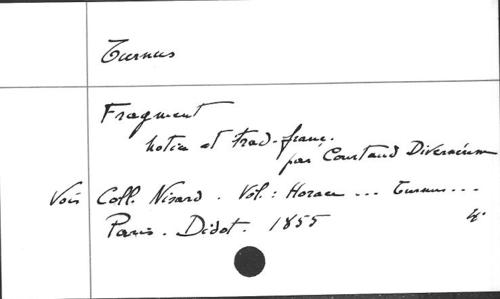 Turnus
Fragment
notice et trad. franç.
par Courtaud Diverneresse
Voir Coll. Nisard. Vol.: Horace ... Turnus ...
Paris. Didot. 1855
4°.